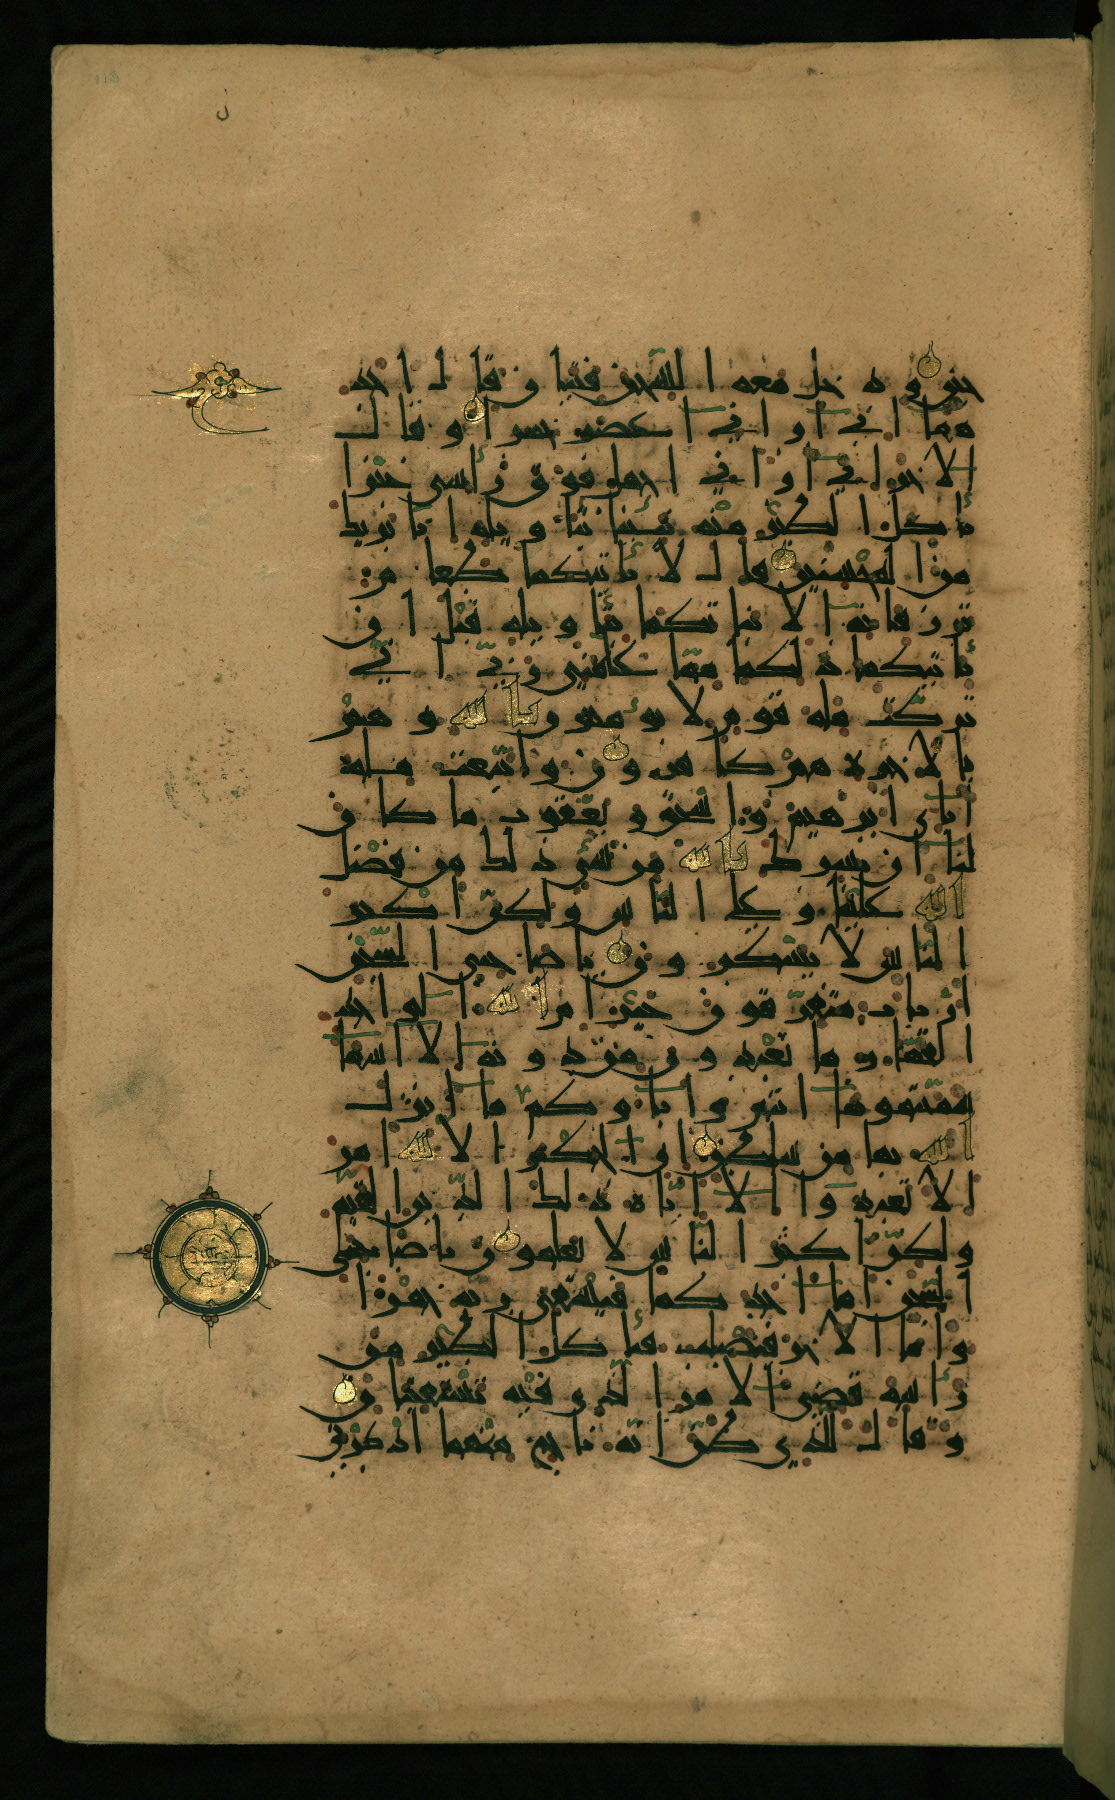 حين ودخل معه السجن فتيان قال احد
هما اني اريني اعصر خمرا وقال
الاخر اني اريني احمل فوق راسي خبزا
تأكل الطير منه نبئنا بتأويله انا نريك
من المحسنين قال لا يأتيكما طعام
ترزقانه الا نبأتكما بتأويله قبل ان
يأتيكما ذلكما مما علمني ربي اني
تركت ملة قوم لا يؤمنون بالله وهم
بالاخرة هم كافرون واتبعت ملة
اباءي ابرهيم واسحق ويعقوب ما كان
لنا ان نشرك بالله من شيء ذلك من فضل
الله علينا وعلى الناس ولكن اكثر
الناس لا يشكرون يا صاحبي السجن
أرباب متفرقون خير ام الله الواحد
القهار ما تعبدون من دونه الا اسماء
سميتموها انتم واباوكم ما انزل
الله بها من سلطن ان الحكم الا لله امر
الا تعبدوا الا اياه ذلك الدين القيم
ولكن اكثر الناس لا يعلمون يا صاحبي
السجن اما احدكما فيسقي ربه خمرا
واما الاخر فيصلب فتأكل الطير من
رأسه قضي الامر الذي فيه تستفتيان
وقال للذي ظن انه ناج منهما اذكرني